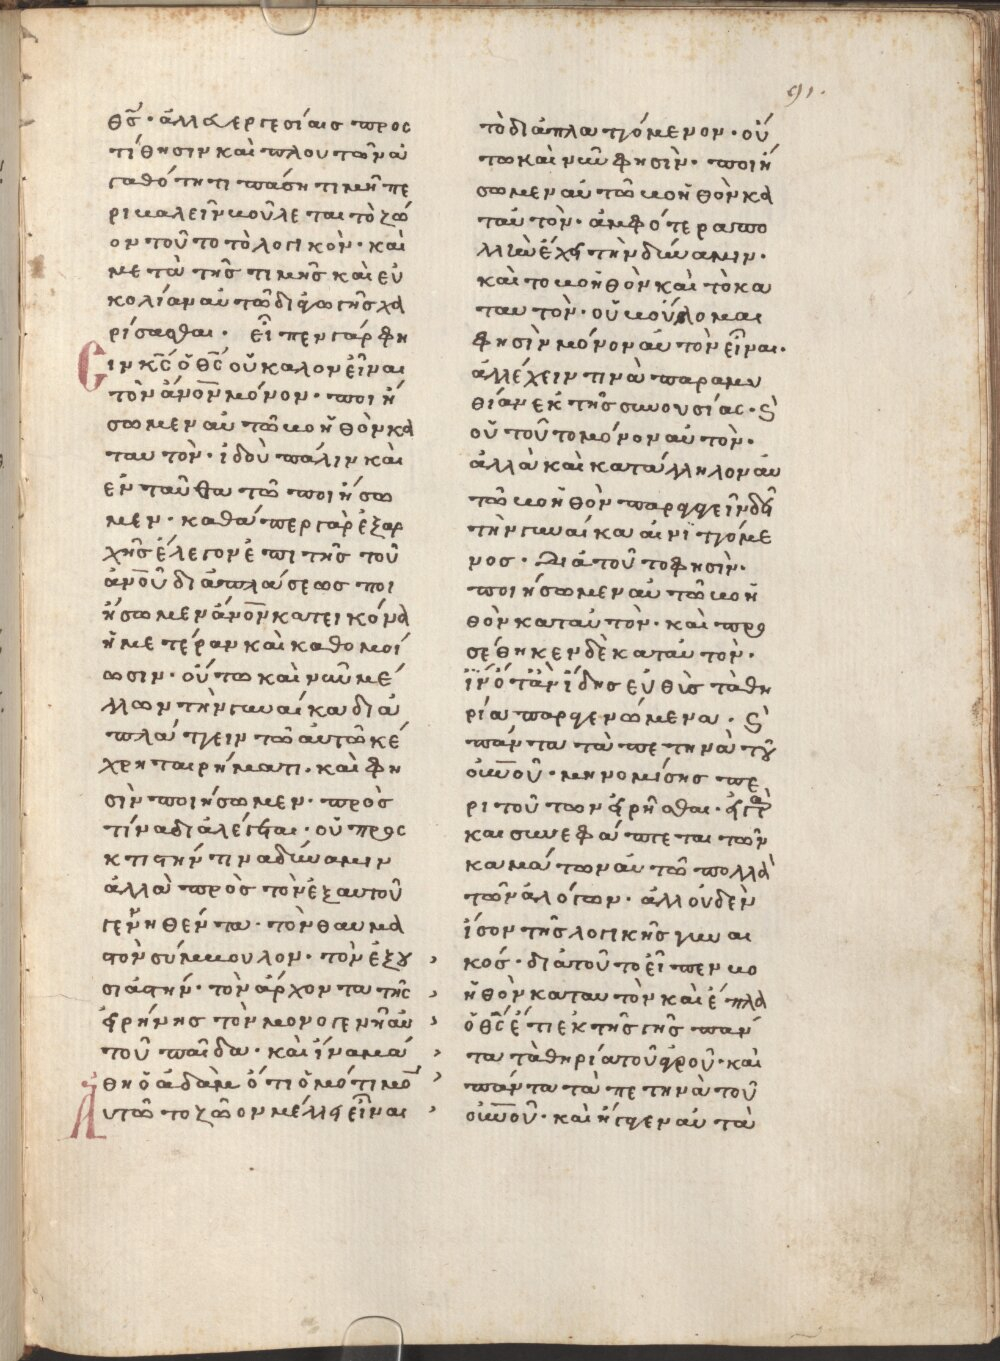 91.
θς̅· ἀλλ' εὐεργεσίαις προσ
τίθησιν καὶ πλουτῶν ἀ
γαθότητι πάση τιμῆ πε
ριβαλεῖν βούλεται τὸ ζῶ
ον τοῦτο τὸ λογικὸν· καὶ
μετὰ τῆς τιμῆς καὶ εὐ
κολίαν αὐτῶ διαγωγῆς χα
ρίσασθαι· εἶπεν γάρ φη
σιν κς̅ ὁ θς̅ οὐ καλὸν εἶναι
τὸν ἄνον̅ μόνον· ποιή
σωμεν αὐτῶ βοηθὸν κα
τ αυτὸν· ἰδοὺ πάλιν καὶ
ἐνταῦθα τῶ ποιήσω
μεν· καθάπερ γὰρ ἐξαρ
χῆς ἔλεγον ἐπὶ τῆς τοῦ
ἀνου̅ διαπλάσεως ποι
ήσωμεν ἄνον̅ κατ εικόνα
ἡμετέραν καὶ καθομοί
ωσιν· οὕτω καὶ νῦν μέ
λλων τὴν γυναίκα δια
πλάττειν τῶ αὐτῶ κέ
χρηται ρήματι· καὶ φη
σὶν ποιήσωμεν· πρὸς
τίνα διαλέγεται· οὐ πρὸς
κτιστήν τινα δύναμιν
ἀλλὰ πρὸς τὸν ἐξ αυτοῦ
γεννηθέντα· τὸν θαυμα
στὸν σύμβουλον· τὸν ἐξου
σιαστήν· τὸν ἄρχοντα τῆς
εἰρήνης τὸν μονογενῆ αὐ
τοῦ παῖδα· καὶ ἵνα μά
θη ὁ ἀδὰμ ὅτι ὁμότιμον
αυτῶ το ζῶον μέλλει εἶναι
τὸ διαπλαττόμενον· οὕ
τω καὶ νῦν φησὶν· ποιή
σωμεν αὐτῶ βοηθὸν κα
τ αὐτὸν· ἀμφότερα πο
λλὴν ἔχει τὴν δύναμιν·
καὶ το βοηθὸν καὶ τὸ κα
τ αυτὸν· οὐ βούλομαι
φησὶν μόνον αὐτὸν εἶναι·
ἀλλ ἔχειν τινὰ παραμυ
θίαν ἐκ τῆς συνουσίας· καὶ
οὐ τοῦτο μόνον αὐτὸν·
ἀλλὰ καὶ κατάλληλον αυ
τῶ βοηθὸν παραγαγεῖν δεῖ
τὴν γυναίκα αἰνιττόμε
νος· Διὰ τοῦτο φησὶν·
ποιήσωμεν αὐτῶ βοη
θὸν κατ αὐτὸν· καὶ προσ
έθηκεν δὲ κατ αὐτὸν·
ἵν' ὅταν ἴδης εὐθὺς τὰ θη
ρία παραγενώμενα· καὶ
πάντα τὰ πετηνὰ του
ουνου̅· μὴ νομίσης πε
ρὶ τούτων εἰρῆσθαι· εἰ γὰρ
καὶ συνεφάπτεται τῶν
καμάτων αὐτῶ πολλὰ
τῶν ἀλόγων· ἀλλ' οὐδὲν
ἴσον τῆς λογικῆς γυναι
κός· διὰ τοῦτο εἶπεν βο
ηθὸν κατ αυτὸν καὶ ἔπλα
σεν ὁ θς̅ ἔτι ἐκ τῆς γῆς πάν
τα τὰ θηρία τοῦ ἀγροῦ· καὶ
πάντα τὰ πετηνὰ τοῦ
ουνου̅· καὶ ἤγαγεν αὐτὰ